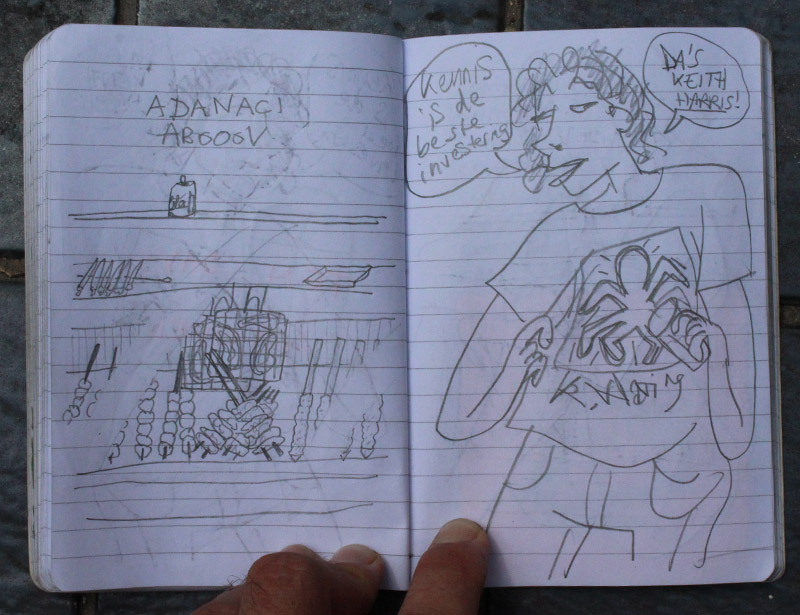 ADANAGI
ABOOOV
Kennis
is de
beste
investering
DA'S
KEITH
HARRIS!
K. Haring